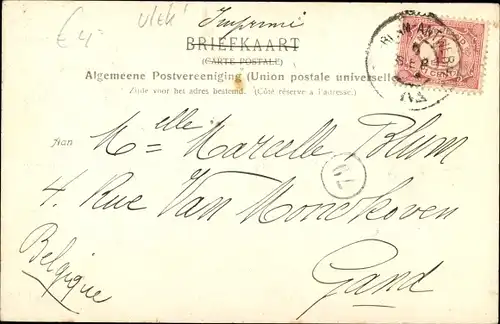 Imprimé
BRIEFKAART
(CARTE POSTALE)
Algemeene Postvereeniging (Union postale universelle)
Zijde voor het adres bestemd. (Côté réserve à l'adresse.)
Aan Melle Marcelle Blum
79
4. Rue Van Monckhoven
Gand
Belgique